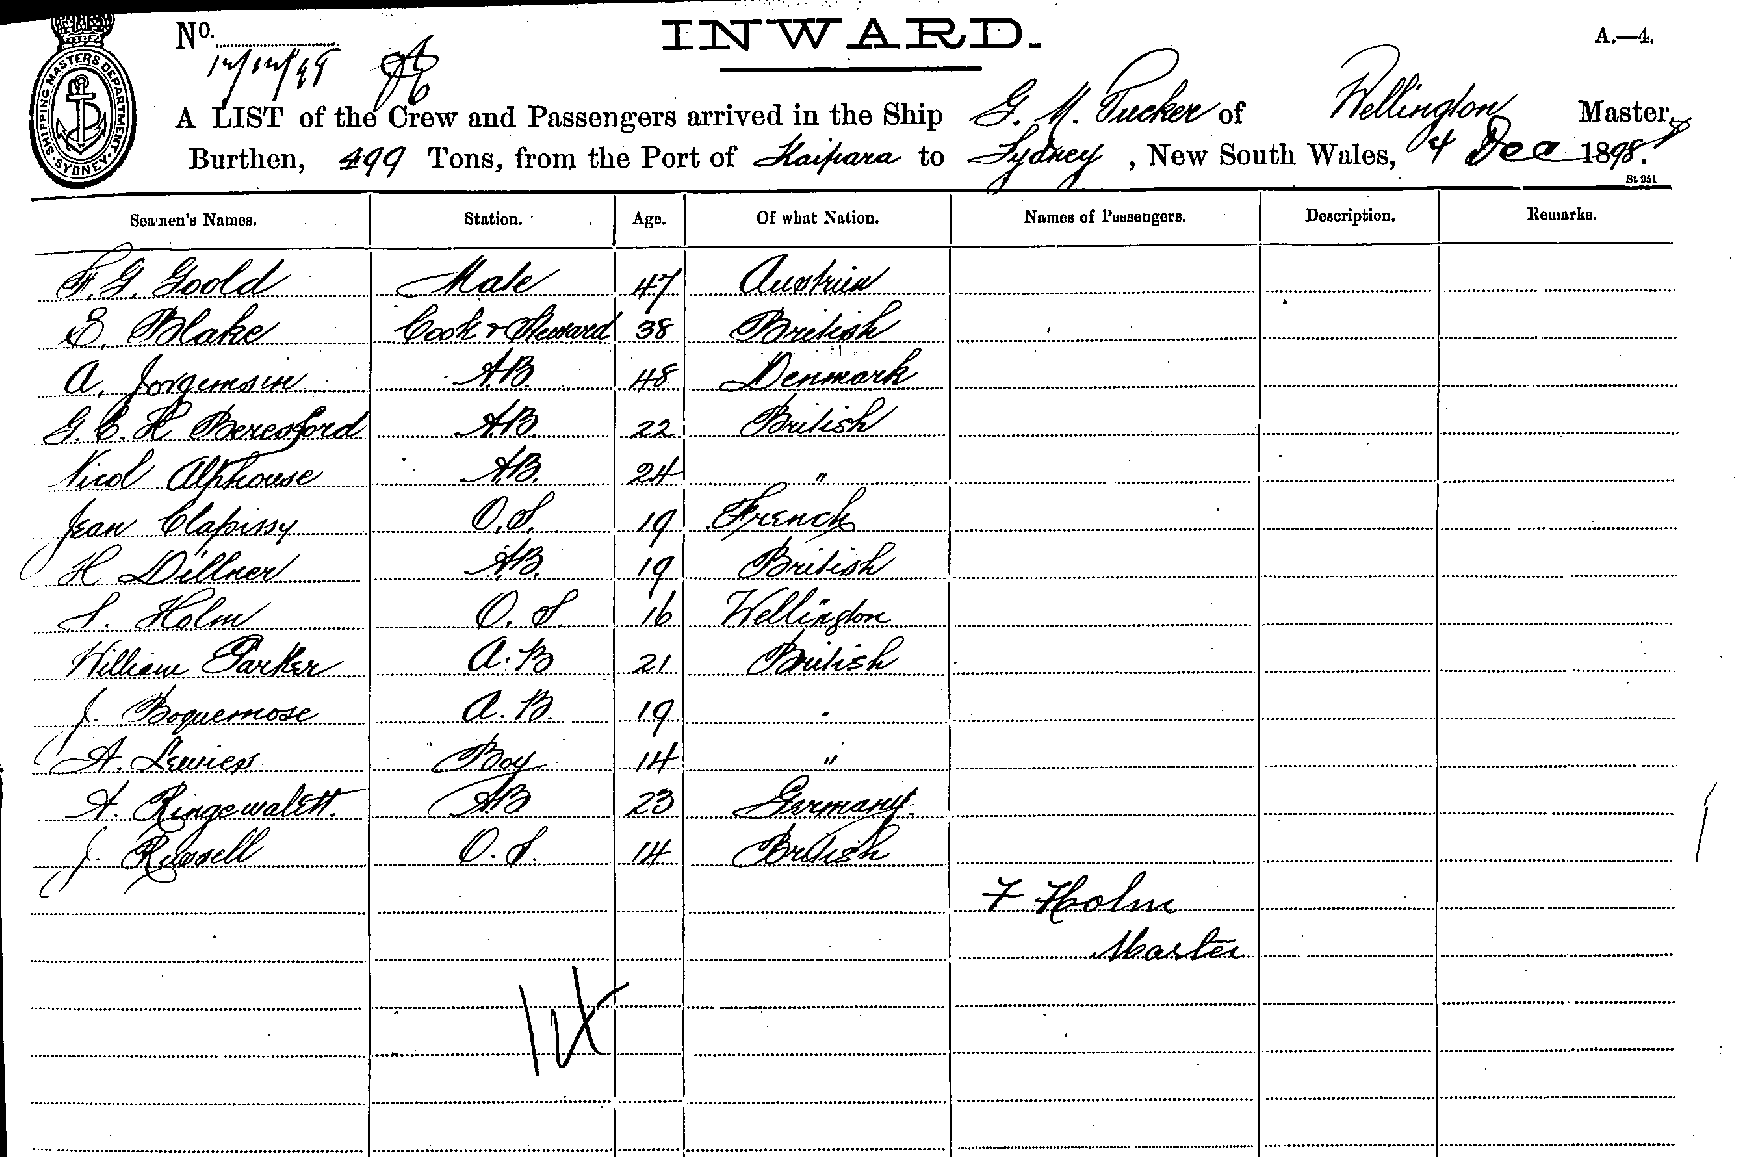 No.
INWARD.
A.—4.
SHIPPING MASTERS DEPARTMENT SYDNEY
A LIST of the Crew and Passengers arrived in the Ship G. M. Tucker of Wellington Master,
Burthen, 499 Tons, from the Port of Kaipara to Sydney, New South Wales, 4 Dec 1898.
St 951
Seamen's Names. Station. Age. Of what Nation. Names of Passengers. Description. Remarks.
F. G. Goold Mate 47 Austria
E. Blake Cook & Steward 38 British
A. Jorgemsin AB 48 Denmark
G. C. H Beresford AB 22 British
Nicol Alphouse AB. 24 "
Jean Clapissy O.S. 19 French
H Dillner AB. 19 British
S. Holm O.S. 16 Wellington
William Parker A.B 21 British
J. Boquemose A.B. 19 "
A. Boy 14 "
A. Ringewalett. AB 23 Germany.
J. Russell O.S. 14 British
F Holm
Master
14